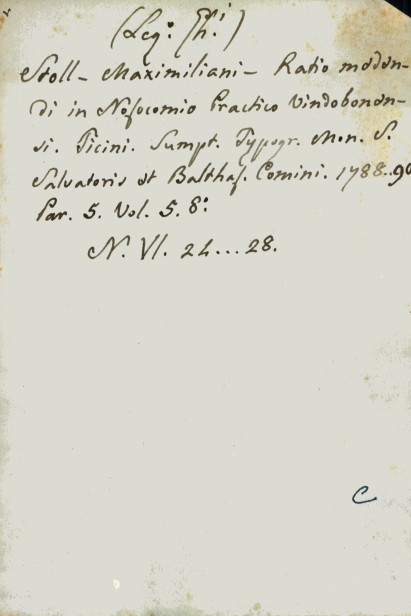 (Leg:
Stoll - Maximiliani - Ratio meden-
di in Nosocomio Practico Vindobonen-
si. Ticini. Sumpt. Typogr. Mon. S.
Salvatoris et Balthas. Comini. 1788..90
Par. 5. Vol. 5. 8:
N. VI. 24...28.
C